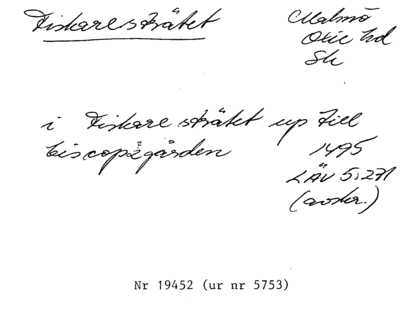 Fiskaresträtet
Malmö
Oxie hd
Sk
i Fiskare strätet up till
biscopsgården
1495
LÄV 5:271
(avskr.)
Nr 19452 (ur nr 5753)